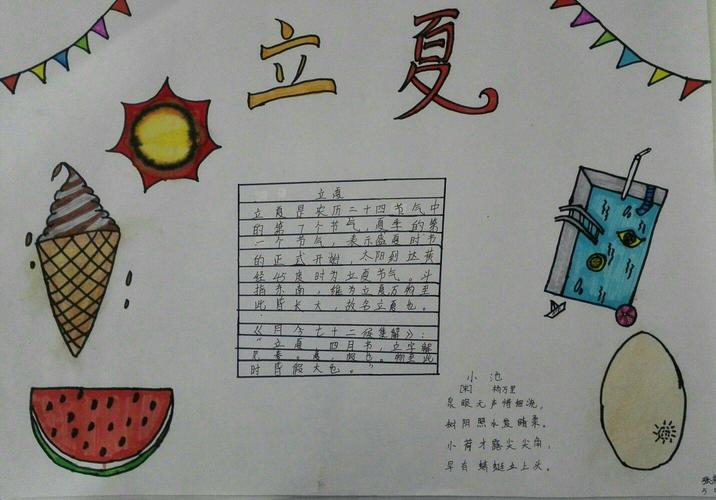 立夏
立夏
立夏是农历二十四节气中
的第7个节气，夏季的第
一个节气，表示盛夏时节
的正式开始，太阳到达黄
经45度时为立夏节气。斗
指东南，维为立夏万物至
此皆长大，故名立夏也。
《月令七十二候集解》：
“立夏，四月节，立字解
见春。夏，假也。物至此
时皆假大也。”
小池
[宋] 杨万里
泉眼无声惜细流，
树阴照水爱晴柔。
小荷才露尖尖角，
早有蜻蜓立上头。
张